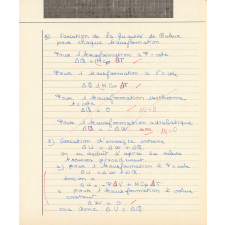 2) Variation de la quantité de chaleur
pour chaque transformation
Pour 1 transformation à P = cste
ΔQ = M Cp ΔT
Pour 1 transformation à V = cste
ΔQ = M Cv ΔT
Pour 1 transformation isotherme
T = cste
ΔQ = 0
Pour 1 transformation adiabatique
ΔQ = - ΔW ΔQ=0
3) Variation d'énergie interne
ΔU = ΔW + ΔQ
on en déduit d'après les valeurs
trouvées précédemment
a) pour 1 transformation à P = cste
ΔU = ΔW + ΔQ
ΔU = - P ΔV + M Cp ΔT
pour 1 transformation à volume
constant
on a donc ΔU = ΔQ